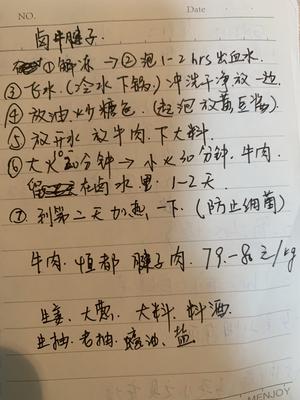 NO.
Date
卤牛腱子.
①解冻 → ②泡1-2hrs出血水.
③飞水.(冷水下锅.)冲洗干净放一边.
④放油炒糖色.(起泡放黄豆酱).
⑤放开水 放牛肉.下大料.
⑥大火20分钟 → 小火30分钟.牛肉.
留在卤水里 1-2天.
⑦到第二天加热一下.(防止细菌)
牛肉.恒都 腱子肉. 79.-8元/kg
生姜、大葱、大料.料酒.
生抽.老抽.蚝油、盐
MENJOY